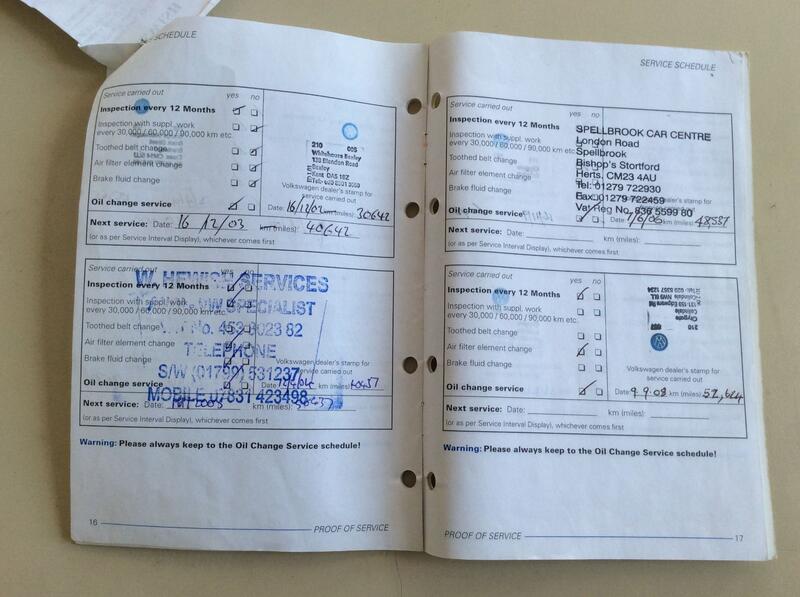 SCHEDULE
Service carried out yes no
Inspection every 12 Months
Inspection with suppl. work
every 30,000 / 60,000 / 90,000 km etc.
Toothed belt change
Air filter element change
Brake fluid change
Oil change service
210 005
Whitehouse Bexley
Bexley
Kent DA5
Volkswagen dealer's stamp for
service carried out
Date: 16/12/02 km (miles): 30642
Next service: Date: 16 12/03 km (miles): 40642
(or as per Service Interval Display), whichever comes first
Service carried out yes no
Inspection every 12 Months
Inspection with suppl. work
every 30,000 / 60,000 / 90,000 km etc.
Toothed belt change
Air filter element change
Brake fluid change
Oil change service
SERVICES
VW SPECIALIST
TELEPHONE
MOBILE 07831 423498
Volkswagen dealer's stamp for
service carried out
Next service: Date: km (miles):
(or as per Service Interval Display), whichever comes first
Warning: Please always keep to the Oil Change Service schedule!
16
PROOF OF SERVICE
SERVICE SCHEDULE
Service carried out yes no
Inspection every 12 Months
Inspection with suppl. work
every 30,000 / 60,000 / 90,000 km etc.
Toothed belt change
Air filter element change
Brake fluid change
Oil change service
SPELLBROOK CAR CENTRE
London Road
Spellbrook
Bishop's Stortford
Herts. CM23 4AU
Tel: 01279 722930
Fax: 01279 722459
Vat Reg No. 836 5599 80
Date: 1/6/06 48,587
Next service: Date: km (miles):
(or as per Service Interval Display), whichever comes first
Service carried out yes no
Inspection every 12 Months
Inspection with suppl. work
every 30,000 / 60,000 / 90,000 km etc.
Toothed belt change
Air filter element change
Brake fluid change
Oil change service
Citygate
Colindale
210
Volkswagen dealer's stamp for
service carried out
Date: 9.9.08 km (miles): 52,624
Next service: Date: km (miles):
(or as per Service Interval Display), whichever comes first
Warning: Please always keep to the Oil Change Service schedule!
PROOF OF SERVICE
17